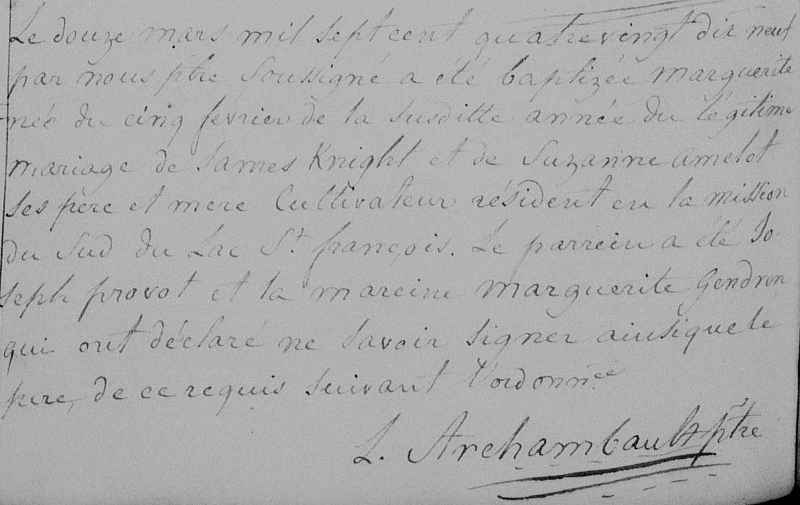 Le douze mars mil sept cent quatrevingt dix neuf
par nous ptre soussigné a été baptizée marguerite
née du cinq fevrier de la susditte année du légitime
mariage de James Knight et de Suzanne amelot
ses pere et mere Cultivateur résident en la mission
du Sud du Lac St. françois. Le parrein a été Jo
seph provot et la mareine marguerite Gendron
qui ont déclaré ne savoir signer ainsique le
pere, de ce requis suivant l'ordonn.ce
L. Archambault ptre